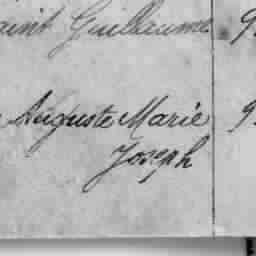 aint Guillaume 9
Auguste Marie 9
Joseph